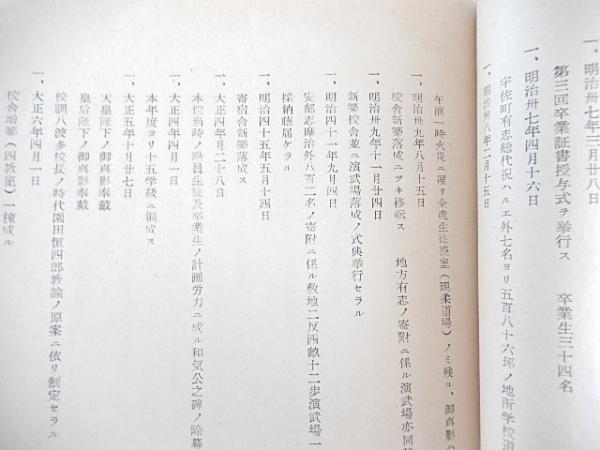 一、明治卅七年三月廿八日
第三回卒業証書授与式ヲ挙行ス　卒業生三十四名
一、明治卅七年四月十六日
宇佐町有志総代祝ハルエ外七名ヨリ五百八十六坪ノ地所学校道
一、明治卅八年二月十五日
午前一時火災ニ罹リ全焼生徒控室（現柔道場）ノミ残ル、御真影ハ
一、明治卅九年八月十五日
校舎新築落成ニツキ移転ス　地方有志ノ寄附ニ係ル演武場亦同
一、明治卅九年十一月廿四日
新築校舎並ニ演武場落成ノ式典挙行セラル
一、明治四十一年九月四日
安部志摩治外八百二名ノ寄附ニ係ル敷地二反四畝十二歩演武場一
採納臨届ケラル
一、明治四十五年五月十四日
寄宿舎新築落成ス
一、大正四年二月二十八日
本校当時ノ職員生徒及卒業生ノ計画労力ニ成ル和気公之碑ノ除幕
一、大正四年四月一日
本年度ヨリ十五学級ニ編成ス
一、大正五年十月廿七日
天皇陛下ノ御真影奉戴
皇后陛下ノ御真影奉戴
校訓八波多校長ノ時代園田恒四郎教諭ノ原案ニ依リ制定セラル
一、大正六年四月一日
校舎増築（四教室）一棟成ル